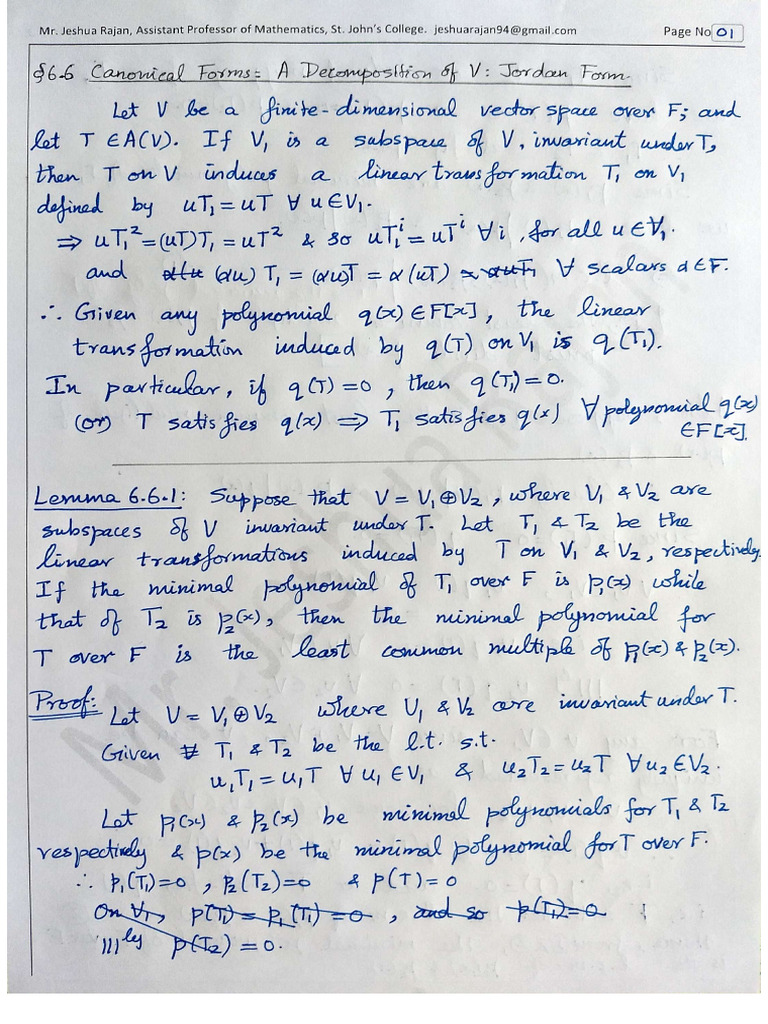 Mr. Jeshua Rajan, Assistant Professor of Mathematics, St. John's College. jeshuarajan94@gmail.com Page No 01
§6.6 Canonical Forms: A Decomposition of V: Jordan Form.
Let V be a finite-dimensional vector space over F; and
let T ∈ A(V). If V₁ is a subspace of V, invariant under T,
then T on V induces a linear transformation T₁ on V₁
defined by uT₁ = uT ∀ u ∈ V₁.
⇒ uT₁² = (uT)T₁ = uT² & so uT₁ⁱ = uTⁱ ∀ i, for all u ∈ V₁.
and (αu)T₁ = (αu)T = α(uT) ∀ scalars α ∈ F.
∴ Given any polynomial q(x) ∈ F[x], the linear
transformation induced by q(T) on V₁ is q(T₁).
In particular, if q(T) = 0, then q(T₁) = 0.
(or) T satisfies q(x) ⟹ T₁ satisfies q(x) ∀ polynomial q(x)
∈ F[x].
Lemma 6.6.1: Suppose that V = V₁ ⊕ V₂, where V₁ & V₂ are
subspaces of V invariant under T. Let T₁ & T₂ be the
linear transformations induced by T on V₁ & V₂, respectively.
If the minimal polynomial of T₁ over F is p₁(x) while
that of T₂ is p₂(x), then the minimal polynomial for
T over F is the least common multiple of p₁(x) & p₂(x).
Proof: Let V = V₁ ⊕ V₂ where V₁ & V₂ are invariant under T.
Given T₁ & T₂ be the l.t. s.t.
u₁T₁ = u₁T ∀ u₁ ∈ V₁ & u₂T₂ = u₂T ∀ u₂ ∈ V₂.
Let p₁(x) & p₂(x) be minimal polynomials for T₁ & T₂
respectively & p(x) be the minimal polynomial for T over F.
∴ p₁(T₁) = 0, p₂(T₂) = 0 & p(T) = 0
On V₁, p(T₁) = p₁(T₁) = 0, and so p(T₁) = 0
|||ly p(T₂) = 0.
Mr. Jeshua Rajan